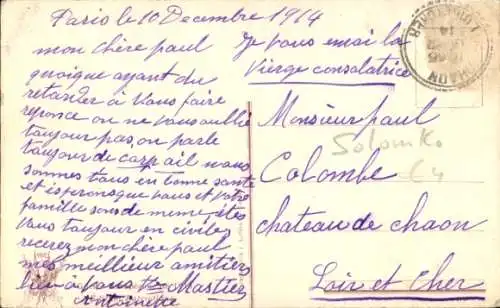 Paris le 10 Decembre 1914
mon chère paul
quoique ayant du
retarder a Vous faire
reponse on ne Vous oublie
toujour pas, on parle
toujour de nous
sommes tous en bonne sante
et esperons que vous et Votre
famille sons de meme, étes
Vous toujour en civile,
recevez mon chère paul
mes meilleur amitier
bien a vous
Antoinette
Je vous envoi la
Vierge consolatrice
CHAON
Monsieur paul
Solomko
Colombe
chateau de chaon
Loir et Cher